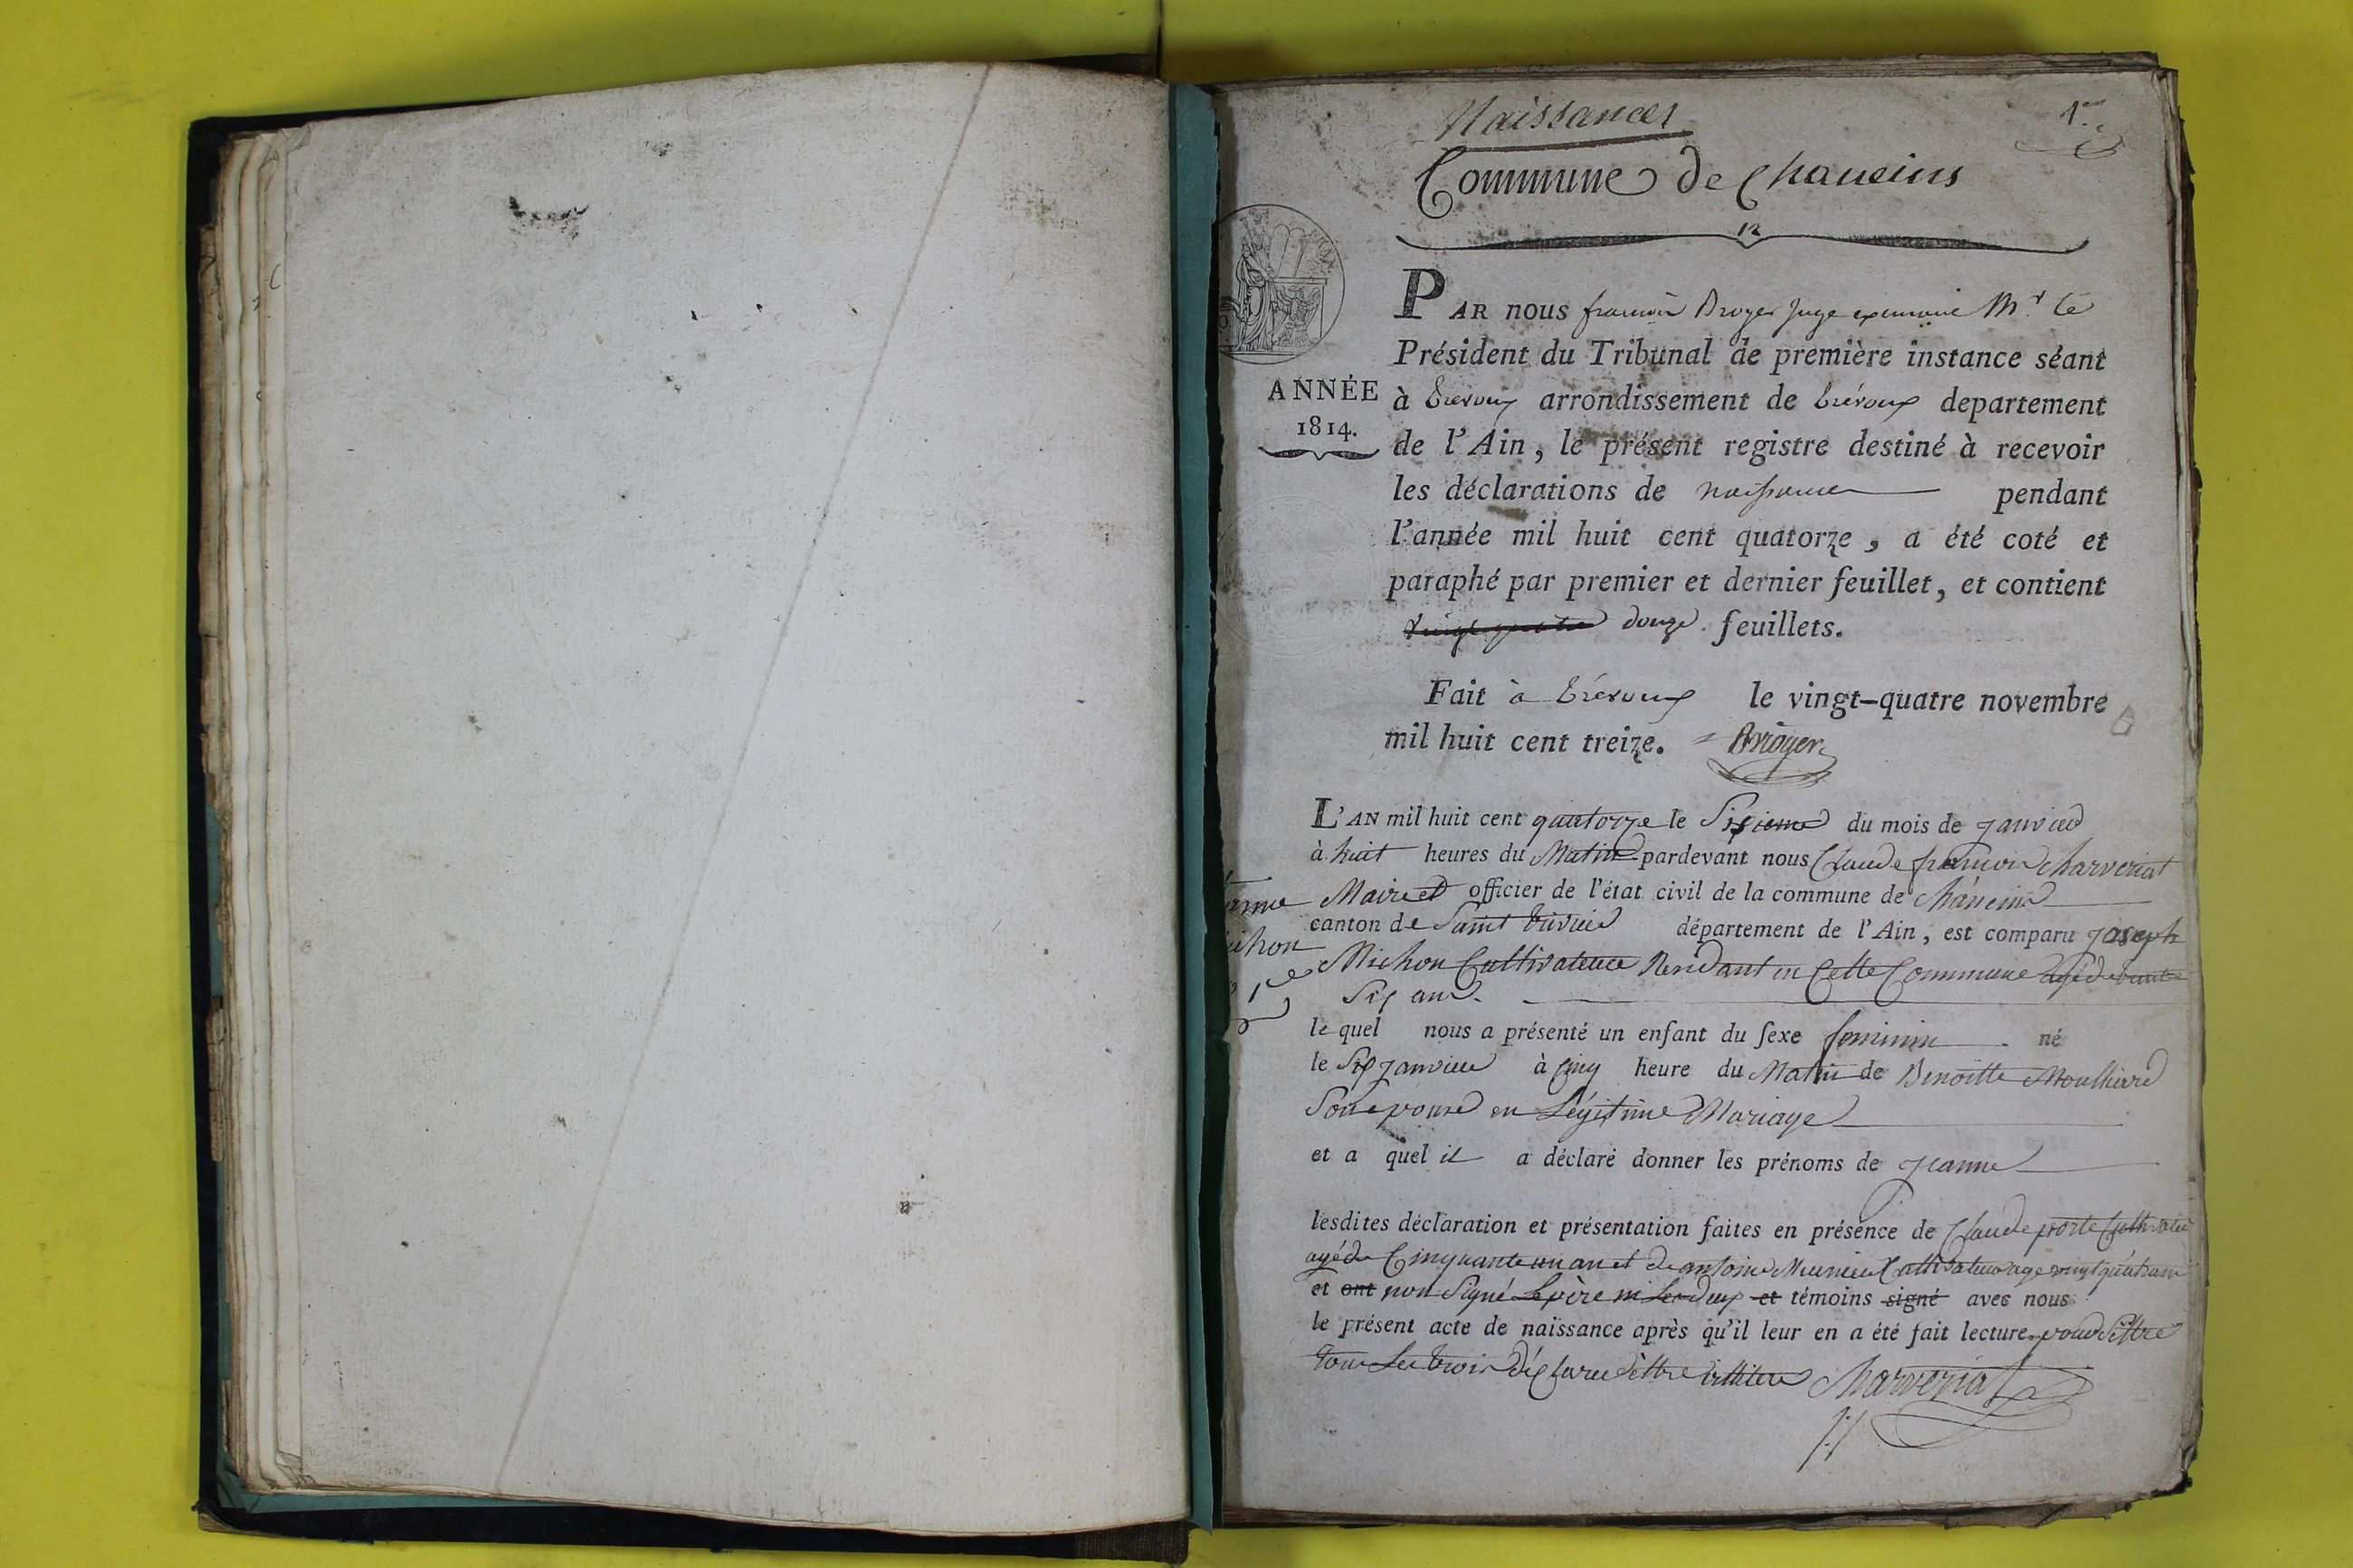 Naissances
1er
Commune de Chaneins
12
PAR nous françois Broyer juge M. le
Président du Tribunal de première instance séant
à Trévoux arrondissement de trévoux departement
de l'Ain, le présent registre destiné à recevoir
les déclarations de naissance pendant
l'année mil huit cent quatorze, a été coté et
paraphé par premier et dernier feuillet, et contient
vingt quatre douze feuillets.
ANNÉE
1814.
Fait à trévoux le vingt-quatre novembre
mil huit cent treize. Broyer
L'AN mil huit cent quatorze le Sixieme du mois de janvier
à huit heures du Matin pardevant nous Claude françois Charveriat
Maire et officier de l'état civil de la commune de Cháneins
canton de Saint trivier département de l'Ain, est comparu joseph
Michon Cultivateur Residant en Cette Commune agé de trente
Six ans.
le quel nous a présenté un enfant du sexe feminin né
le Six janvier à cinq heure du Matin de Benoitte Moulliard
Son epouse en Légitime Mariage
et a quel il a déclaré donner les prénoms de jeanne
lesdites déclaration et présentation faites en présence de Claude porte Cultivateur
agé de Cinquante un an et de antoine Meunier Cultivateur age vingt quatre ans
et ont non Signé Le père ni Les deux et témoins signé avec nous
le présent acte de naissance après qu'il leur en a été fait lecture. pour être
tous Les trois déclaré être illiteré Charveriat
anne
ichon
1er